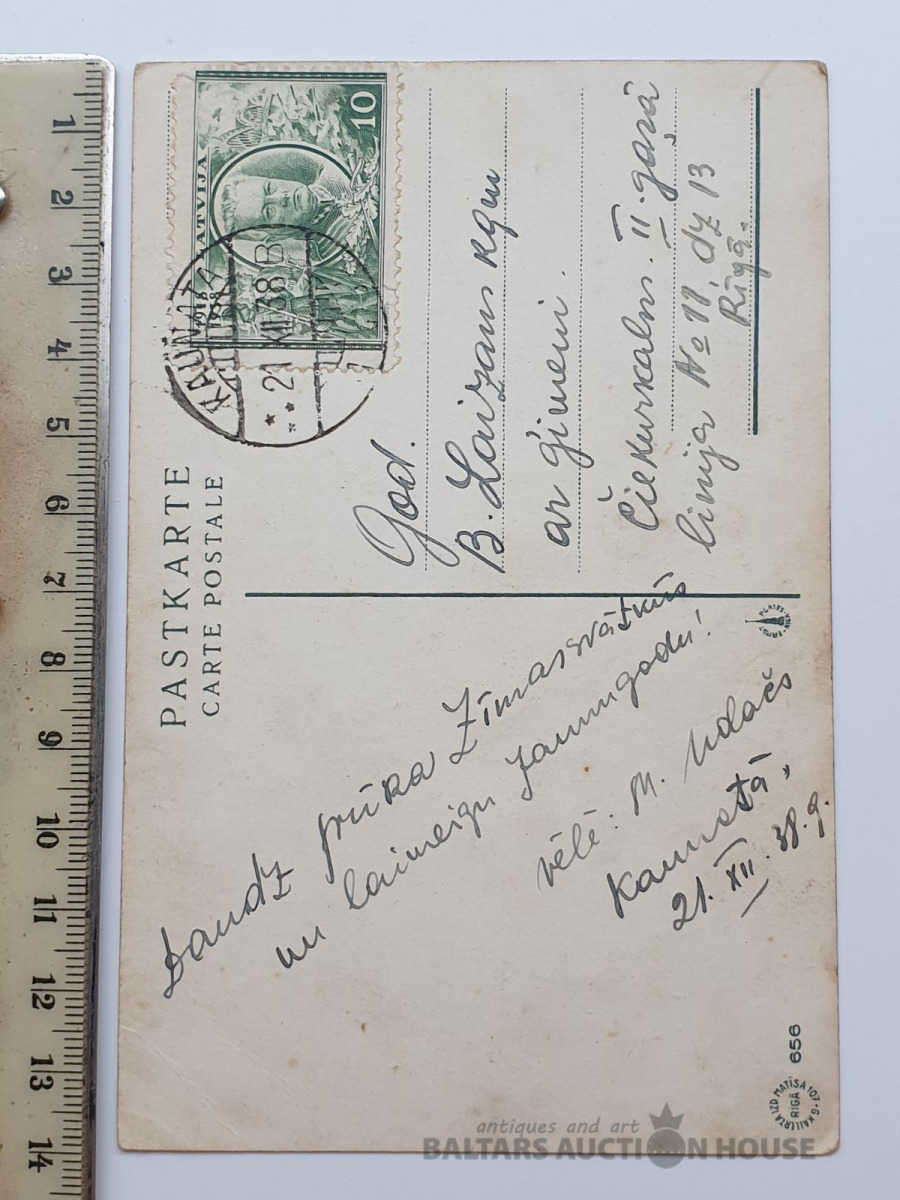 PASTKARTE
CARTE POSTALE
LATVIJA
1918
1938
10
KAUNATA
21 XII 38 B
God.
B. Laizan kgm
ar ģimeni.
Čiekurkaln. II. gaŗā
linija No 11, dz 13
Rīgā.
Daudz prieka Zīmassvātkūs
un laimeigu Jaungodu!
vēlē: M. Udačs
Kaunatā,
21. XII. 38. g.
656
IZD. MATĪSA 107
RĪGĀ
1 2 3 4 5 6 7 8 9 10 11 12 13 14
antiques and art
BALTARS AUCTION HOUSE